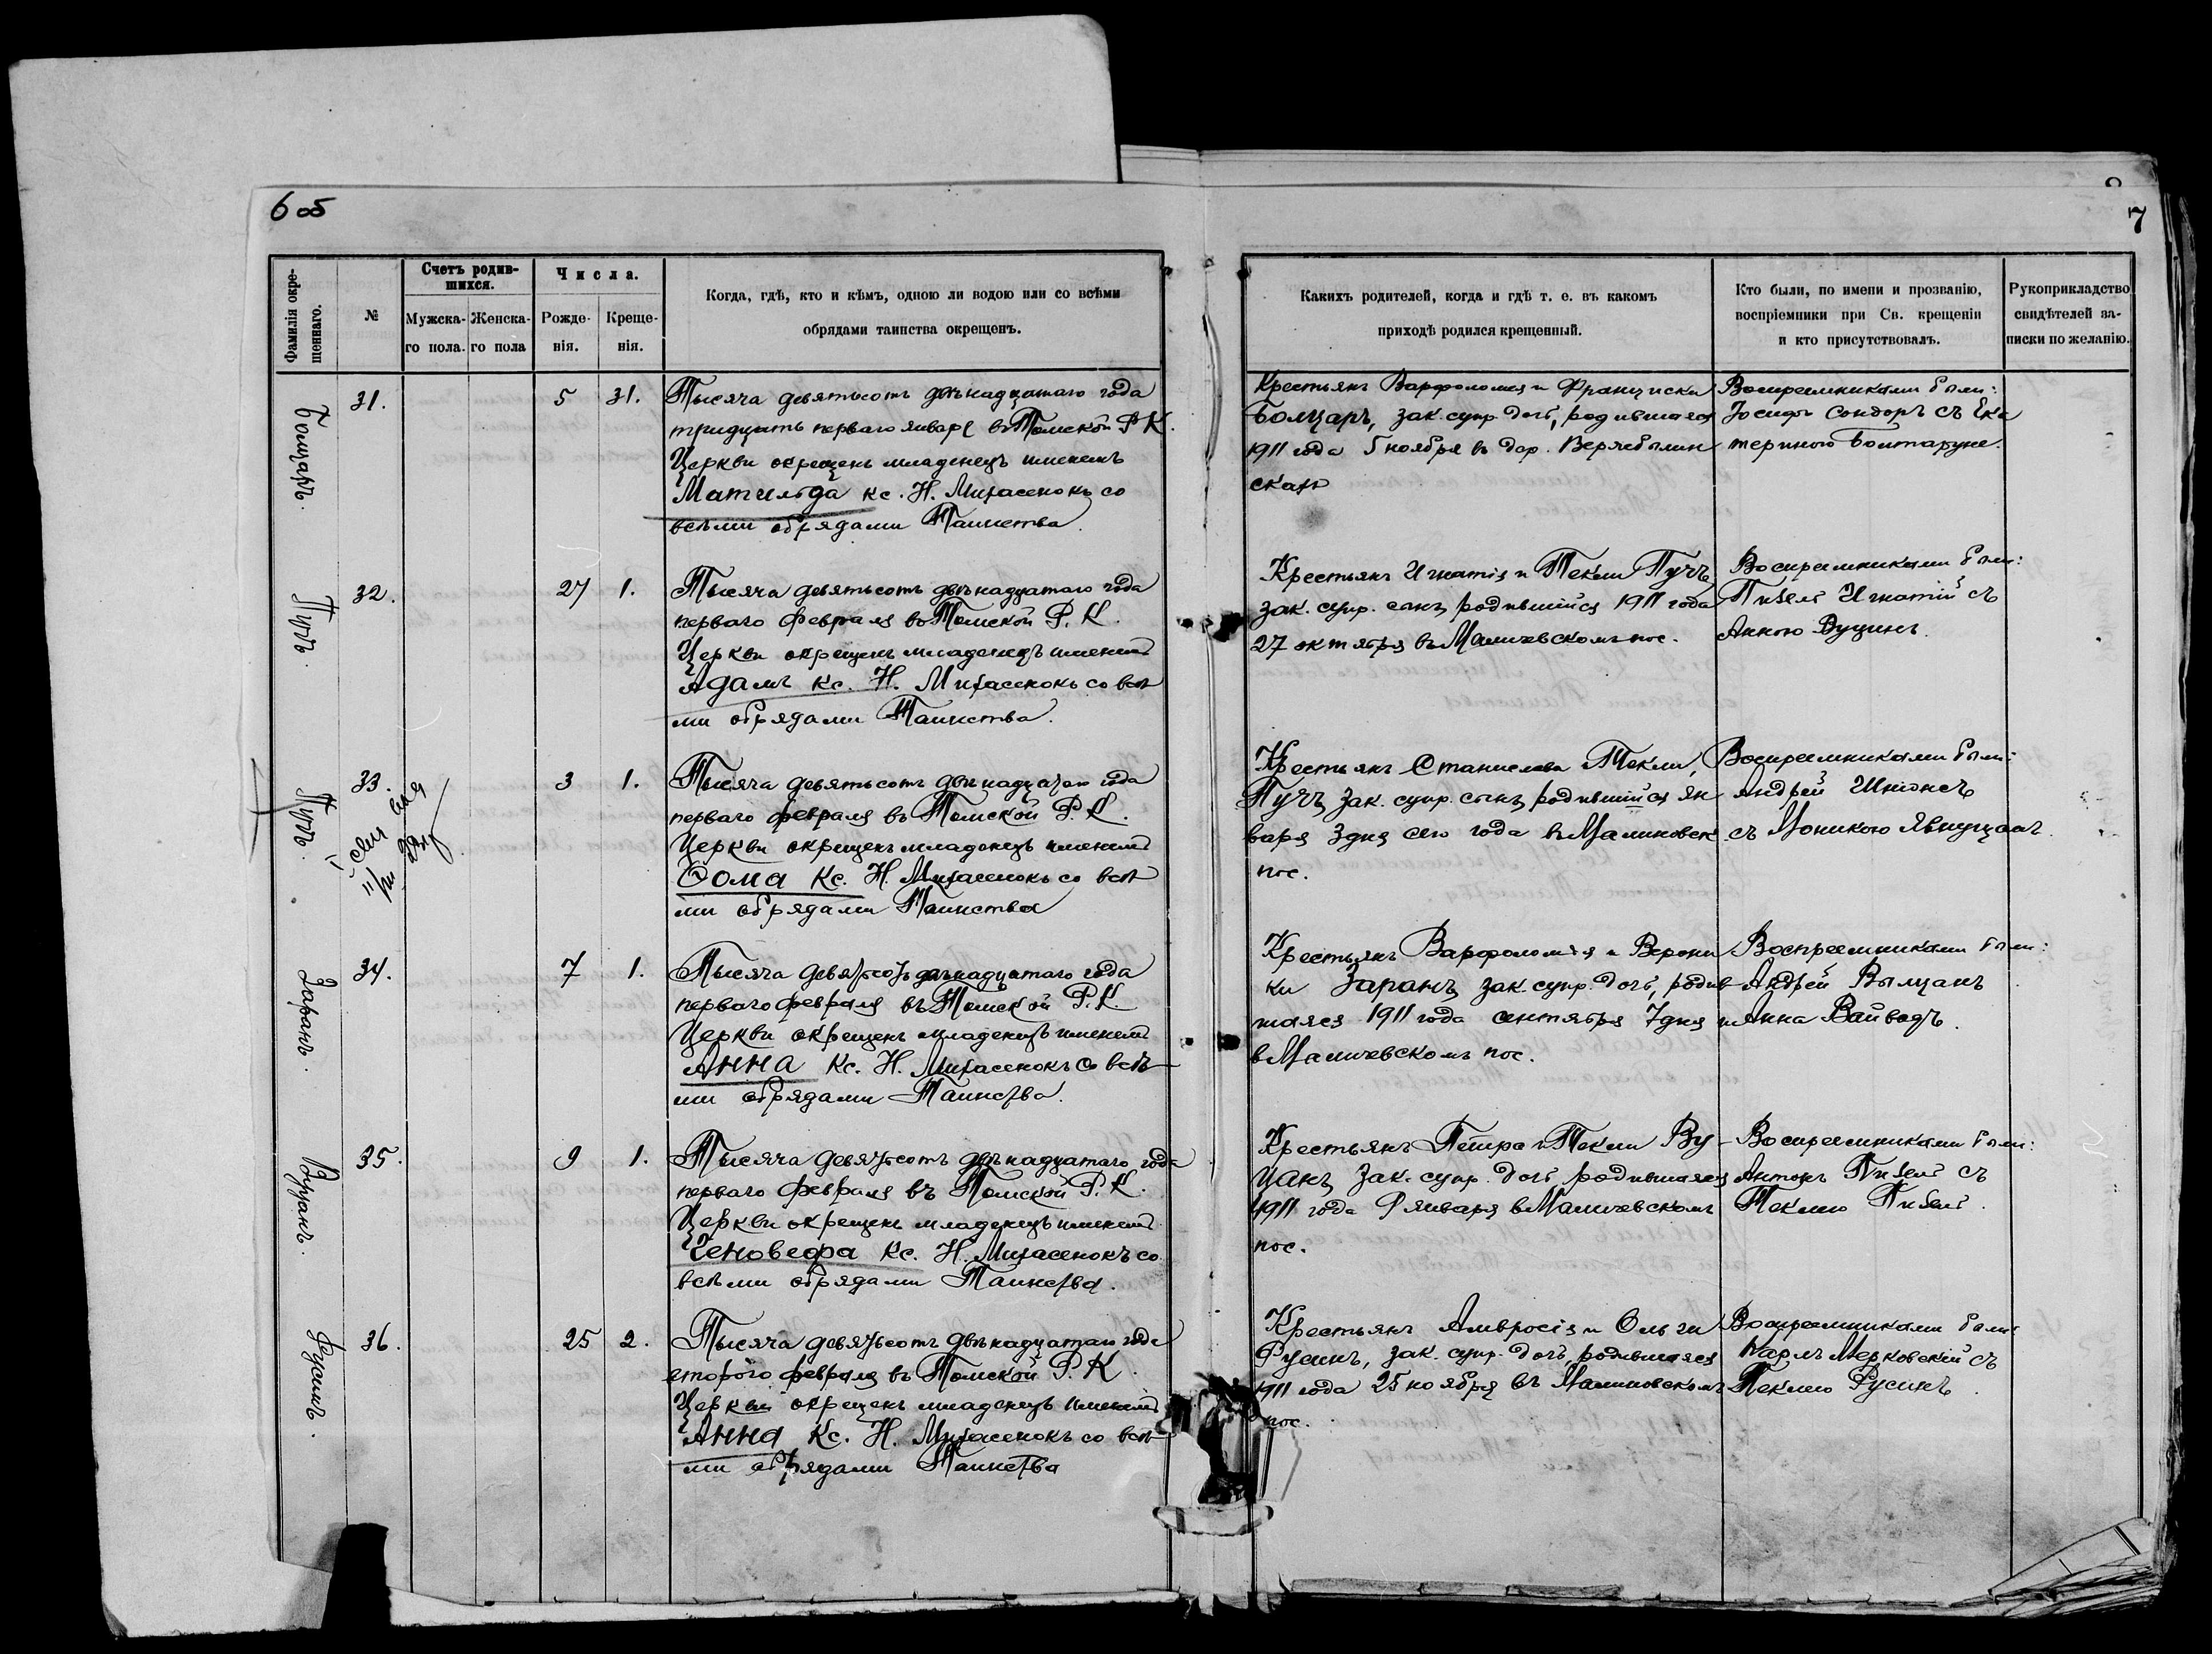 6 об
7
Фамилія окрещеннаго.
№
Счетъ родившихся.
Мужскаго пола.
Женскаго пола
Числа.
Рожденія.
Крещенія.
Когда, гдѣ, кто и кѣмъ, одною ли водою или со всѣми
обрядами таинства окрещенъ.
Какихъ родителей, когда и гдѣ т. е. въ какомъ
приходѣ родился крещенный.
Кто были, по имени и прозванію,
воспріемники при Св. крещеніи
и кто присутствовалъ.
Рукоприкладство
свидѣтелей за-
писки по желанію.
31.
5
31.
Тысяча девятьсотъ двѣнадцатаго года
тридцать перваго января въ Томской Р. К.
Церкви окрещенъ младенецъ именемъ
Матильда кс. Н. Михасенокъ со
всѣми обрядами Таинства.
Крестьянъ Варфоломея и Франциски
Болцаръ, зак. супр. дочь, родившаяся
1911 года 5 ноября въ дер.
скаго
Воспреемниками были:
Іосифъ Сондоръ съ Ека
териною
Пучъ.
32.
27
1.
Тысяча девятьсотъ двѣнадцатаго года
перваго февраля въ Томской Р. К.
Церкви окрещенъ младенецъ именемъ
Адамъ кс. Н. Михасенокъ со всѣ
ми обрядами Таинства.
Крестьянъ Игнатія и Текли Пучъ,
зак. супр. сынъ, родившійся 1911 года
27 октября въ Маличевскомъ пос.
Воспреемниками были:
Игнатій съ
Анною Вуцинъ.
Пучъ.
33.
3
1.
Тысяча девятьсотъ двѣнадцатаго года
перваго февраля въ Томской Р. К.
Церкви окрещенъ младенецъ именемъ
Ѳома Кс. Н. Михасенокъ со всѣ
ми обрядами Таинства
Крестьянъ Станислава и Текли,
Пучъ, зак. супр. сынъ, родившійся ян
варя 3 дня сего года въ Малиновск.
пос.
Воспреемниками были:
Андрей
съ Моникою
Заранъ.
34.
7
1.
Тысяча девятьсотъ двѣнадцатаго года
перваго февраля въ Томской Р. К.
Церкви окрещенъ младенецъ именемъ
Анна Кс. Н. Михасенокъ со всѣ
ми обрядами Таинства.
Крестьянъ Варфоломея и Верони
ки Заранъ, зак. супр. дочь, родив
шаяся 1911 года сентября 7 дня
въ Маличевскомъ пос.
Воспреемниками были:
Андрей Вылцанъ
и Анна Вайводъ.
Вуцанъ.
35.
9
1.
Тысяча девятьсотъ двѣнадцатаго года
перваго февраля въ Томской Р. К.
Церкви окрещенъ младенецъ именемъ
Геновефа Кс. Н. Михасенокъ со
всѣми обрядами Таинства.
Крестьянъ Петра и Текли Ву-
цанъ, зак. супр. дочь, родившаяся
1911 года 9 января въ Маличевскомъ
пос.
Воспреемниками были:
Антонъ съ
Теклею
Русинъ.
36.
25
2.
Тысяча девятьсотъ двѣнадцатаго года
второго февраля въ Томской Р. К.
Церкви окрещенъ младенецъ именемъ
Анна Кс. Н. Михасенокъ со всѣ
ми обрядами Таинства
Крестьянъ Амвросія и Ольги
Русинъ, зак. супр. дочь, родившаяся
1911 года 25 ноября въ Малиновскомъ
пос.
Воспреемниками были:
Карлъ Мерковскій съ
Теклею Русинъ.